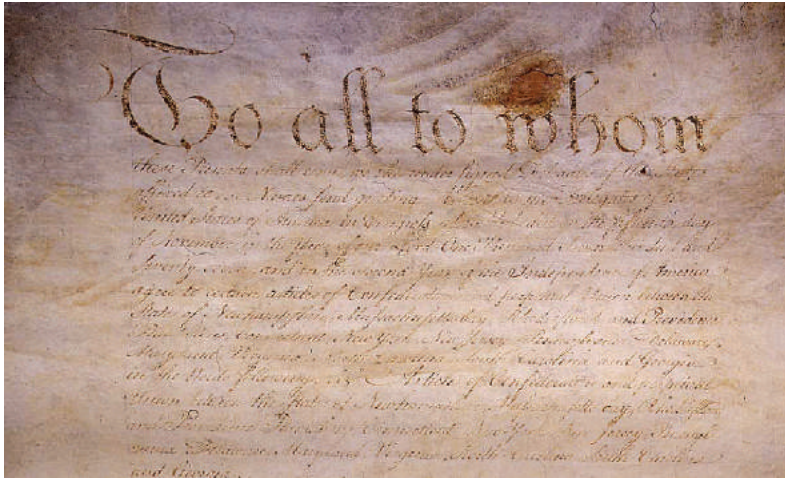 To all to whom
these Presents shall come, we the under signed Delegates of the States
affixed to our Names send greeting. Whereas the Delegates of the
United States of America in Congress assembled did on the fifteenth day
of November in the Year of our Lord One Thousand Seven Hundred and
Seventy seven, and in the Second Year of the Independence of America
agree to certain articles of Confederation and perpetual Union between the
States of Newhampshire, Massachusetts-bay, Rhodeisland and Providence
Plantations, Connecticut, New York, New Jersey, Pennsylvania, Delaware,
Maryland, Virginia, North Carolina, South Carolina and Georgia
in the Words following, viz. Articles of Confederation and perpetual
Union between the States of Newhampshire, Massachusetts-bay, Rhodeisland
and Providence Plantations, Connecticut, New York, New Jersey, Pennsyl
vania, Delaware, Maryland, Virginia, North Carolina, South Carolina
and Georgia